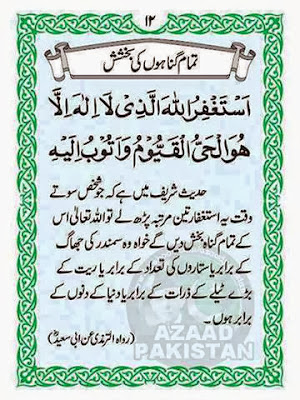 ۱۲
تمام گناہوں کی بخشش
اَسْتَغْفِرُ اللّٰهَ الَّذِیْ لَا اِلٰهَ اِلَّا
هُوَ الْحَیُّ الْقَیُّوْمُ وَ اَتُوْبُ اِلَیْهِ
حدیث شریف میں ہے کہ جو شخص سوتے
وقت یہ استغفار تین مرتبہ پڑھ لے تو اللہ تعالیٰ اس
کے تمام گناہ بخش دیں گے خواہ وہ سمندر کی جھاگ
کے برابر یا ستاروں کی تعداد کے برابر یا ریت کے
بڑے ٹیلے کے ذرات کے برابر یا دنیا کے دنوں کے
برابر ہوں۔
(رواہ الترمذی عن ابی سعیدؓ)
AZAAD
PAKISTAN